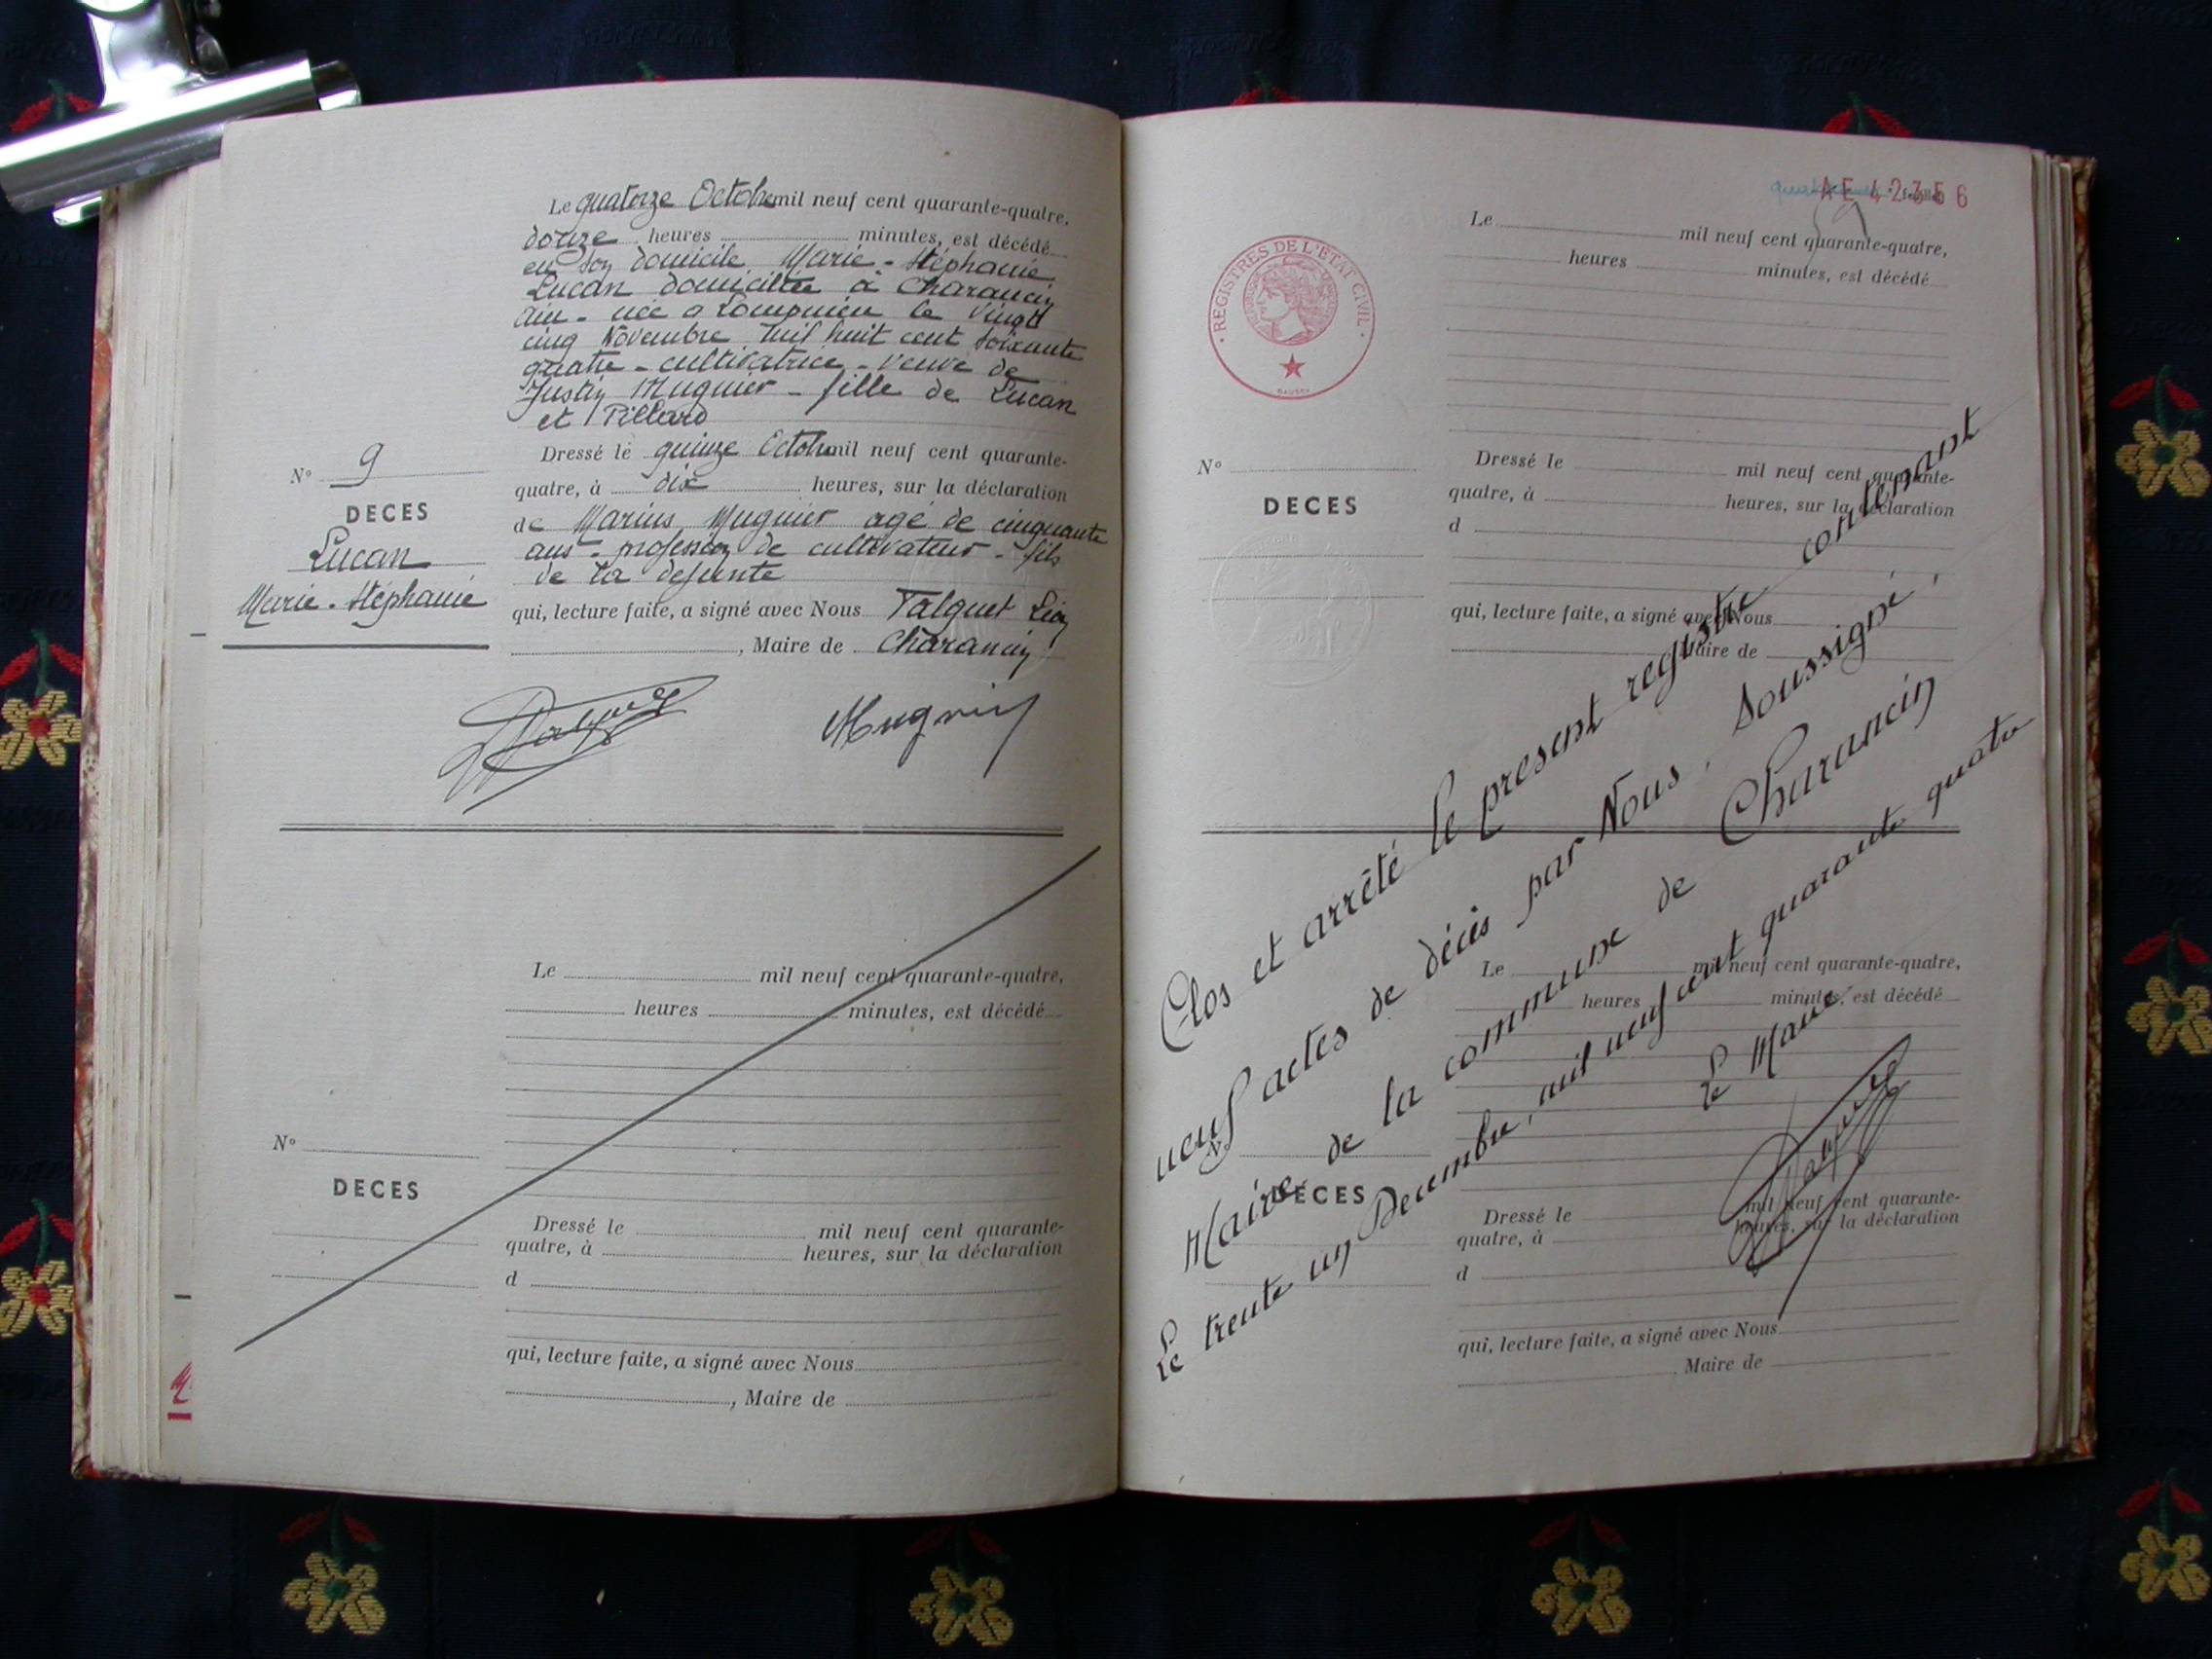 Le quatorze Octobre mil neuf cent quarante-quatre,
douze heures minutes, est décédé
en son domicile Marie-Stéphanie
Lucan domiciliée à Charancin
Ain - née a Lompnieu le vingt
cinq Novembre mil huit cent soixante
quatre - cultivatrice - veuve de
Justin Mugnier - fille de Lucan
et Pillard
N° 9
DECES
Lucan
Marie-Stéphanie
Dressé le quinze Octobre mil neuf cent quarante-
quatre, à dix heures, sur la déclaration
de Marius Mugnier agé de cinquante
ans - profession de cultivateur - fils
de la defunte
qui, lecture faite, a signé avec Nous Talquet Léon
, Maire de Charancin
Mugnier
Le mil neuf cent quarante-quatre,
heures minutes, est décédé
N°
DECES
Dressé le mil neuf cent quarante-
quatre, à heures, sur la déclaration
d
qui, lecture faite, a signé avec Nous
, Maire de
AE 42356
REGISTRES DE L'ETAT CIVIL
Le mil neuf cent quarante-quatre,
heures minutes, est décédé
N°
DECES
Dressé le mil neuf cent quarante-
quatre, à heures, sur la déclaration
d
qui, lecture faite, a signé avec Nous
Maire de
Clos et arrêté le present registre contenant
neuf actes de décès par Nous, Soussigné,
Maire de la commune de Charancin
Le trente un Decembre, mil neuf cent quarante quatre
Le Maire
Le mil neuf cent quarante-quatre,
heures minutes, est décédé
DECES
Dressé le mil neuf cent quarante-
quatre, à heures, sur la déclaration
d
qui, lecture faite, a signé avec Nous
, Maire de